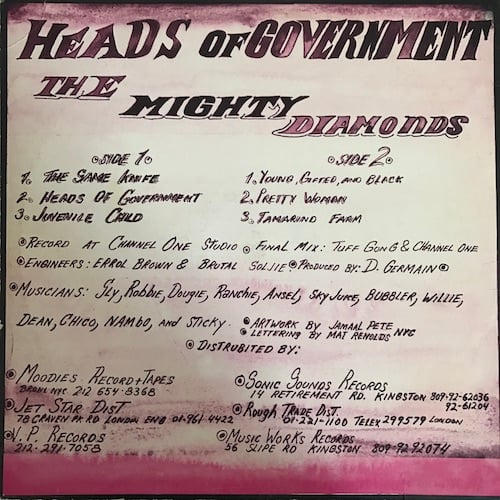 HEADS OF GOVERNMENT
THE MIGHTY DIAMONDS
SIDE 1
1. THE SAME KNIFE
2. HEADS OF GOVERNMENT
3. JUVENILE CHILD
SIDE 2
1. YOUNG, GIFTED, AND BLACK
2. PRETTY WOMAN
3. TAMARIND FARM
RECORD AT CHANNEL ONE STUDIO FINAL MIX: TUFF GONG & CHANNEL ONE
ENGINEERS: ERROL BROWN & BRUTAL SOLJIE PRODUCED BY: D. GERMAIN
MUSICIANS: SLY, ROBBIE, DOUGIE, RANCHIE, ANSEL, SKY JUICE, BUBBLER, WILLIE,
DEAN, CHICO, NAMBO, AND STICKY.
ARTWORK BY JAMAAL PETE NYC
LETTERING BY MAT RENOLDS
DISTRUBITED BY:
MOODIES RECORD + TAPES
BRONX NYC 212 654-8368
SONIC SOUNDS RECORDS
14 RETIREMENT RD. KINGSTON 809-92-62036
92-61204
JET STAR DIST.
78 CRAVEN PK RD LONDON ENG 01-961 4422
ROUGH TRADE DIST.
01-221-1100 TELEX 299579 LONDON
V. P. RECORDS
212-291-7058
MUSIC WORKS RECORDS
56 SLIPE RD KINGSTON 809-92 92074